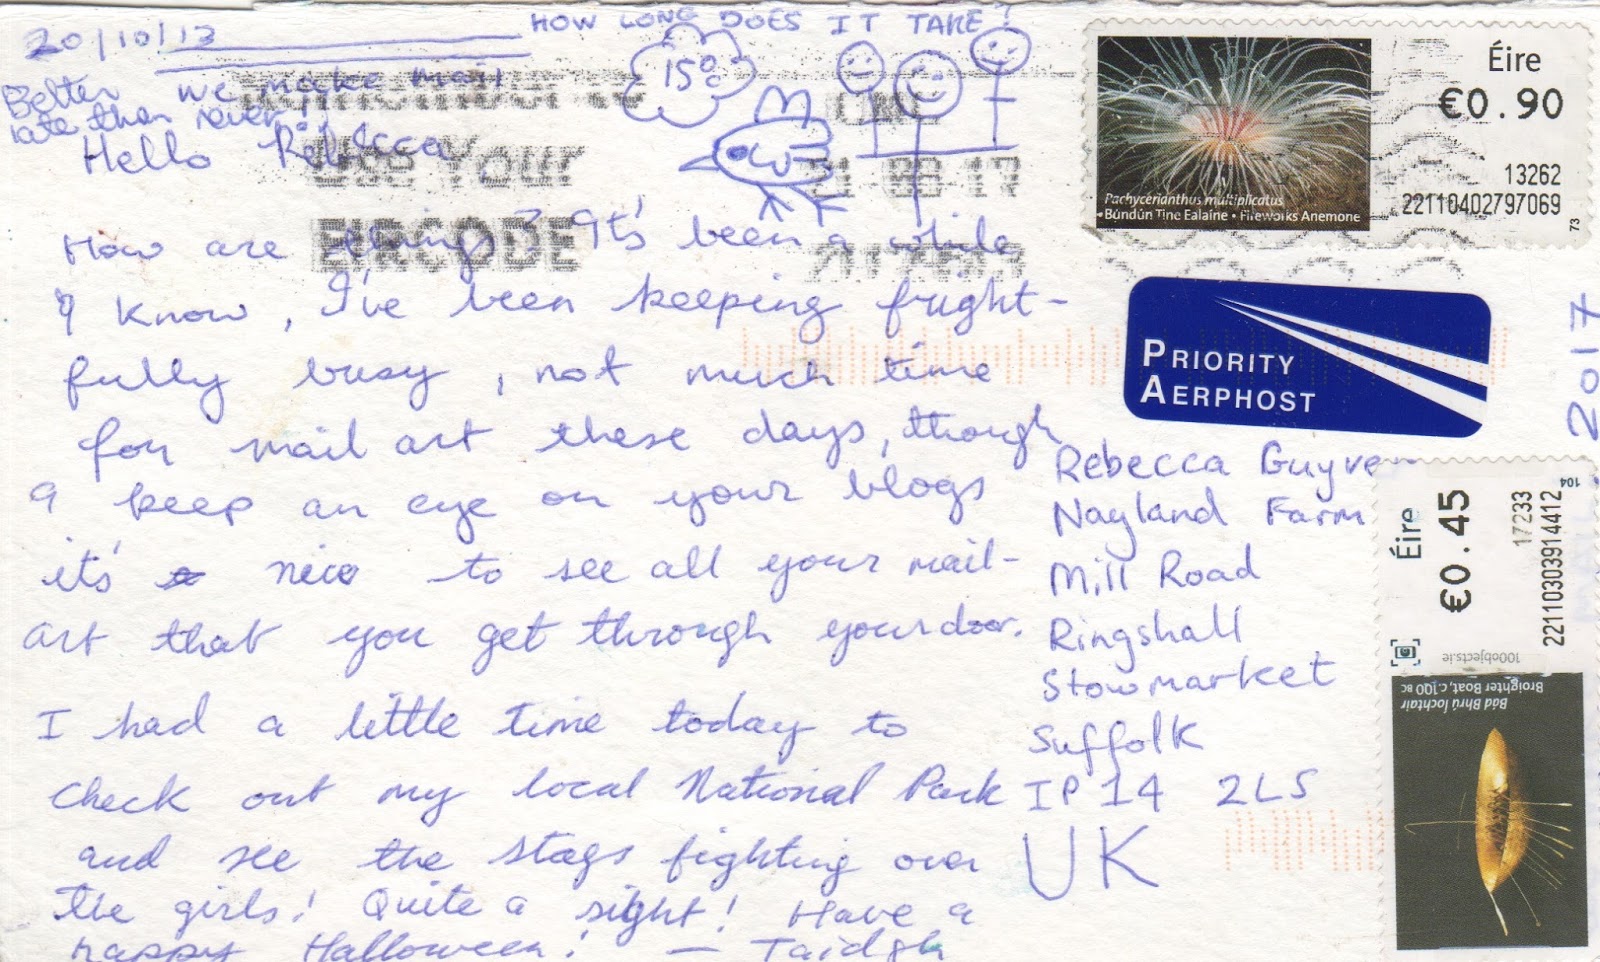 HOW LONG DOES IT TAKE?
20/10/13
Better
late than never!
we make mail
15°C
Hello Rebecca
Use Your
EIRCODE
How are things? It's been a while
I know, I've been keeping fright-
fully busy, not much time
for mail art these days, though
I keep an eye on your blogs
it's nice to see all your mail-
art that you get through your door.
I had a little time today to
check out my local National Park
and see the stags fighting over
the girls! Quite a sight! Have a
happy Halloween! — Taidgh
Éire
€0.90
13262
22110402797069
73
Pachycerianthus multiplicatus
• Bundún Tine Ealaíne • Fireworks Anemone
PRIORITY
AERPHOST
2017
Rebecca Guyver
Nayland Farm
Mill Road
Ringshall
Stowmarket
Suffolk
IP14 2LS
UK
Éire
€0.45
17233
22110303914412
104
100objects.ie
Bád Bhrú Iochtair
Broighter Boat, c.100 BC